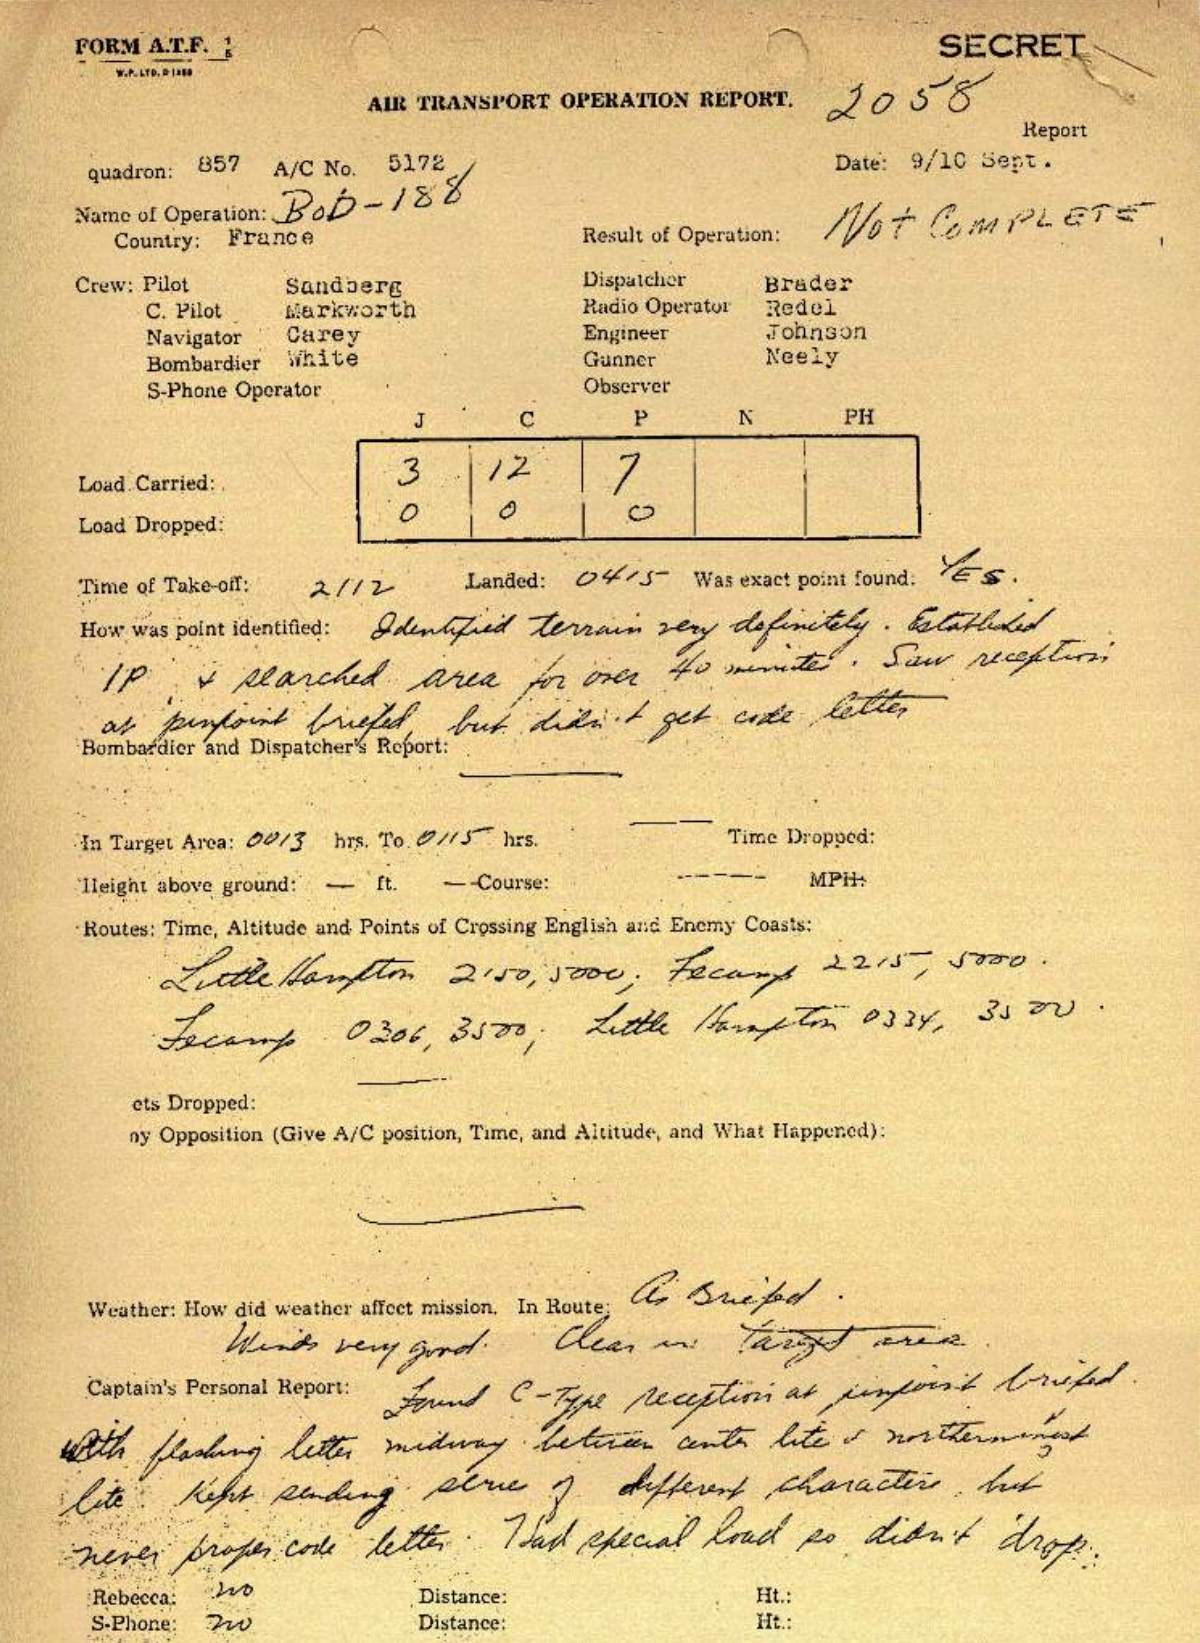 FORM A.T.F. 1/5
SECRET
W.P. LTD. D 1258
AIR TRANSPORT OPERATION REPORT. 2058
Report
quadron: 857 A/C No. 5172 Date: 9/10 Sept.
Name of Operation: BoD-188
Country: France Result of Operation: Not COMPLETE
Crew: Pilot Sandberg Dispatcher Brader
C. Pilot Markworth Radio Operator Redel
Navigator Carey Engineer Johnson
Bombardier White Gunner Neely
S-Phone Operator Observer
J C P N PH
Load Carried: 3 12 7
Load Dropped: 0 0 0
Time of Take-off: 2112 Landed: 0415 Was exact point found: YES.
How was point identified: Identified terrain very definitely. Established
IP & searched area for over 40 minutes. Saw reception
at pinpoint briefed, but didn't get code letter
Bombardier and Dispatcher's Report: —
In Target Area: 0013 hrs. To 0115 hrs. — Time Dropped:
Height above ground: — ft. — Course: — MPH:
Routes: Time, Altitude and Points of Crossing English and Enemy Coasts:
Little Hampton 2150, 5000; Fecamp 2215, 5000.
Fecamp 0306, 3500; Little Hampton 0334, 3500.
ets Dropped: —
ny Opposition (Give A/C position, Time, and Altitude, and What Happened):
—
Weather: How did weather affect mission. In Route: As Briefed.
Winds very good. Clear in target area
Captain's Personal Report: Found C-Type reception at pinpoint briefed.
with flashing letter midway between center lite & northernmost
lite. Kept sending series of different characters, but
never proper code letter. Had special load so didn't drop.
Rebecca: no Distance: Ht.:
S-Phone: no Distance: Ht.: